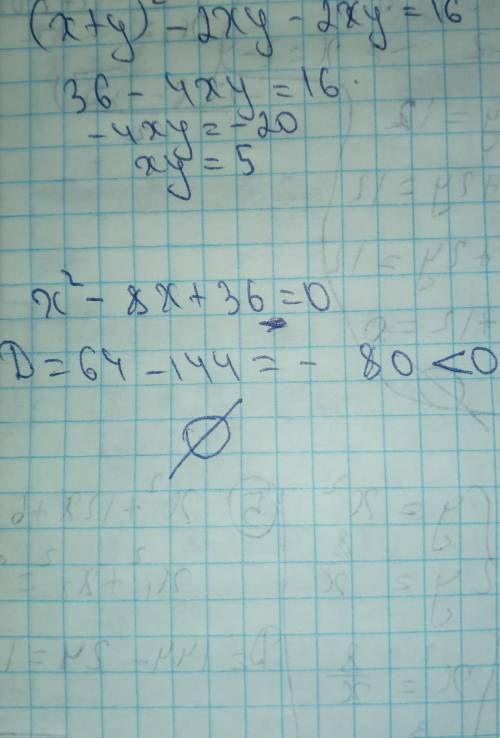 (x+y)² - 2xy - 2xy = 16
36 - 4xy = 16
-4xy = -20
xy = 5
x² - 8x + 36 = 0
D = 64 - 144 = - 80 < 0
∅